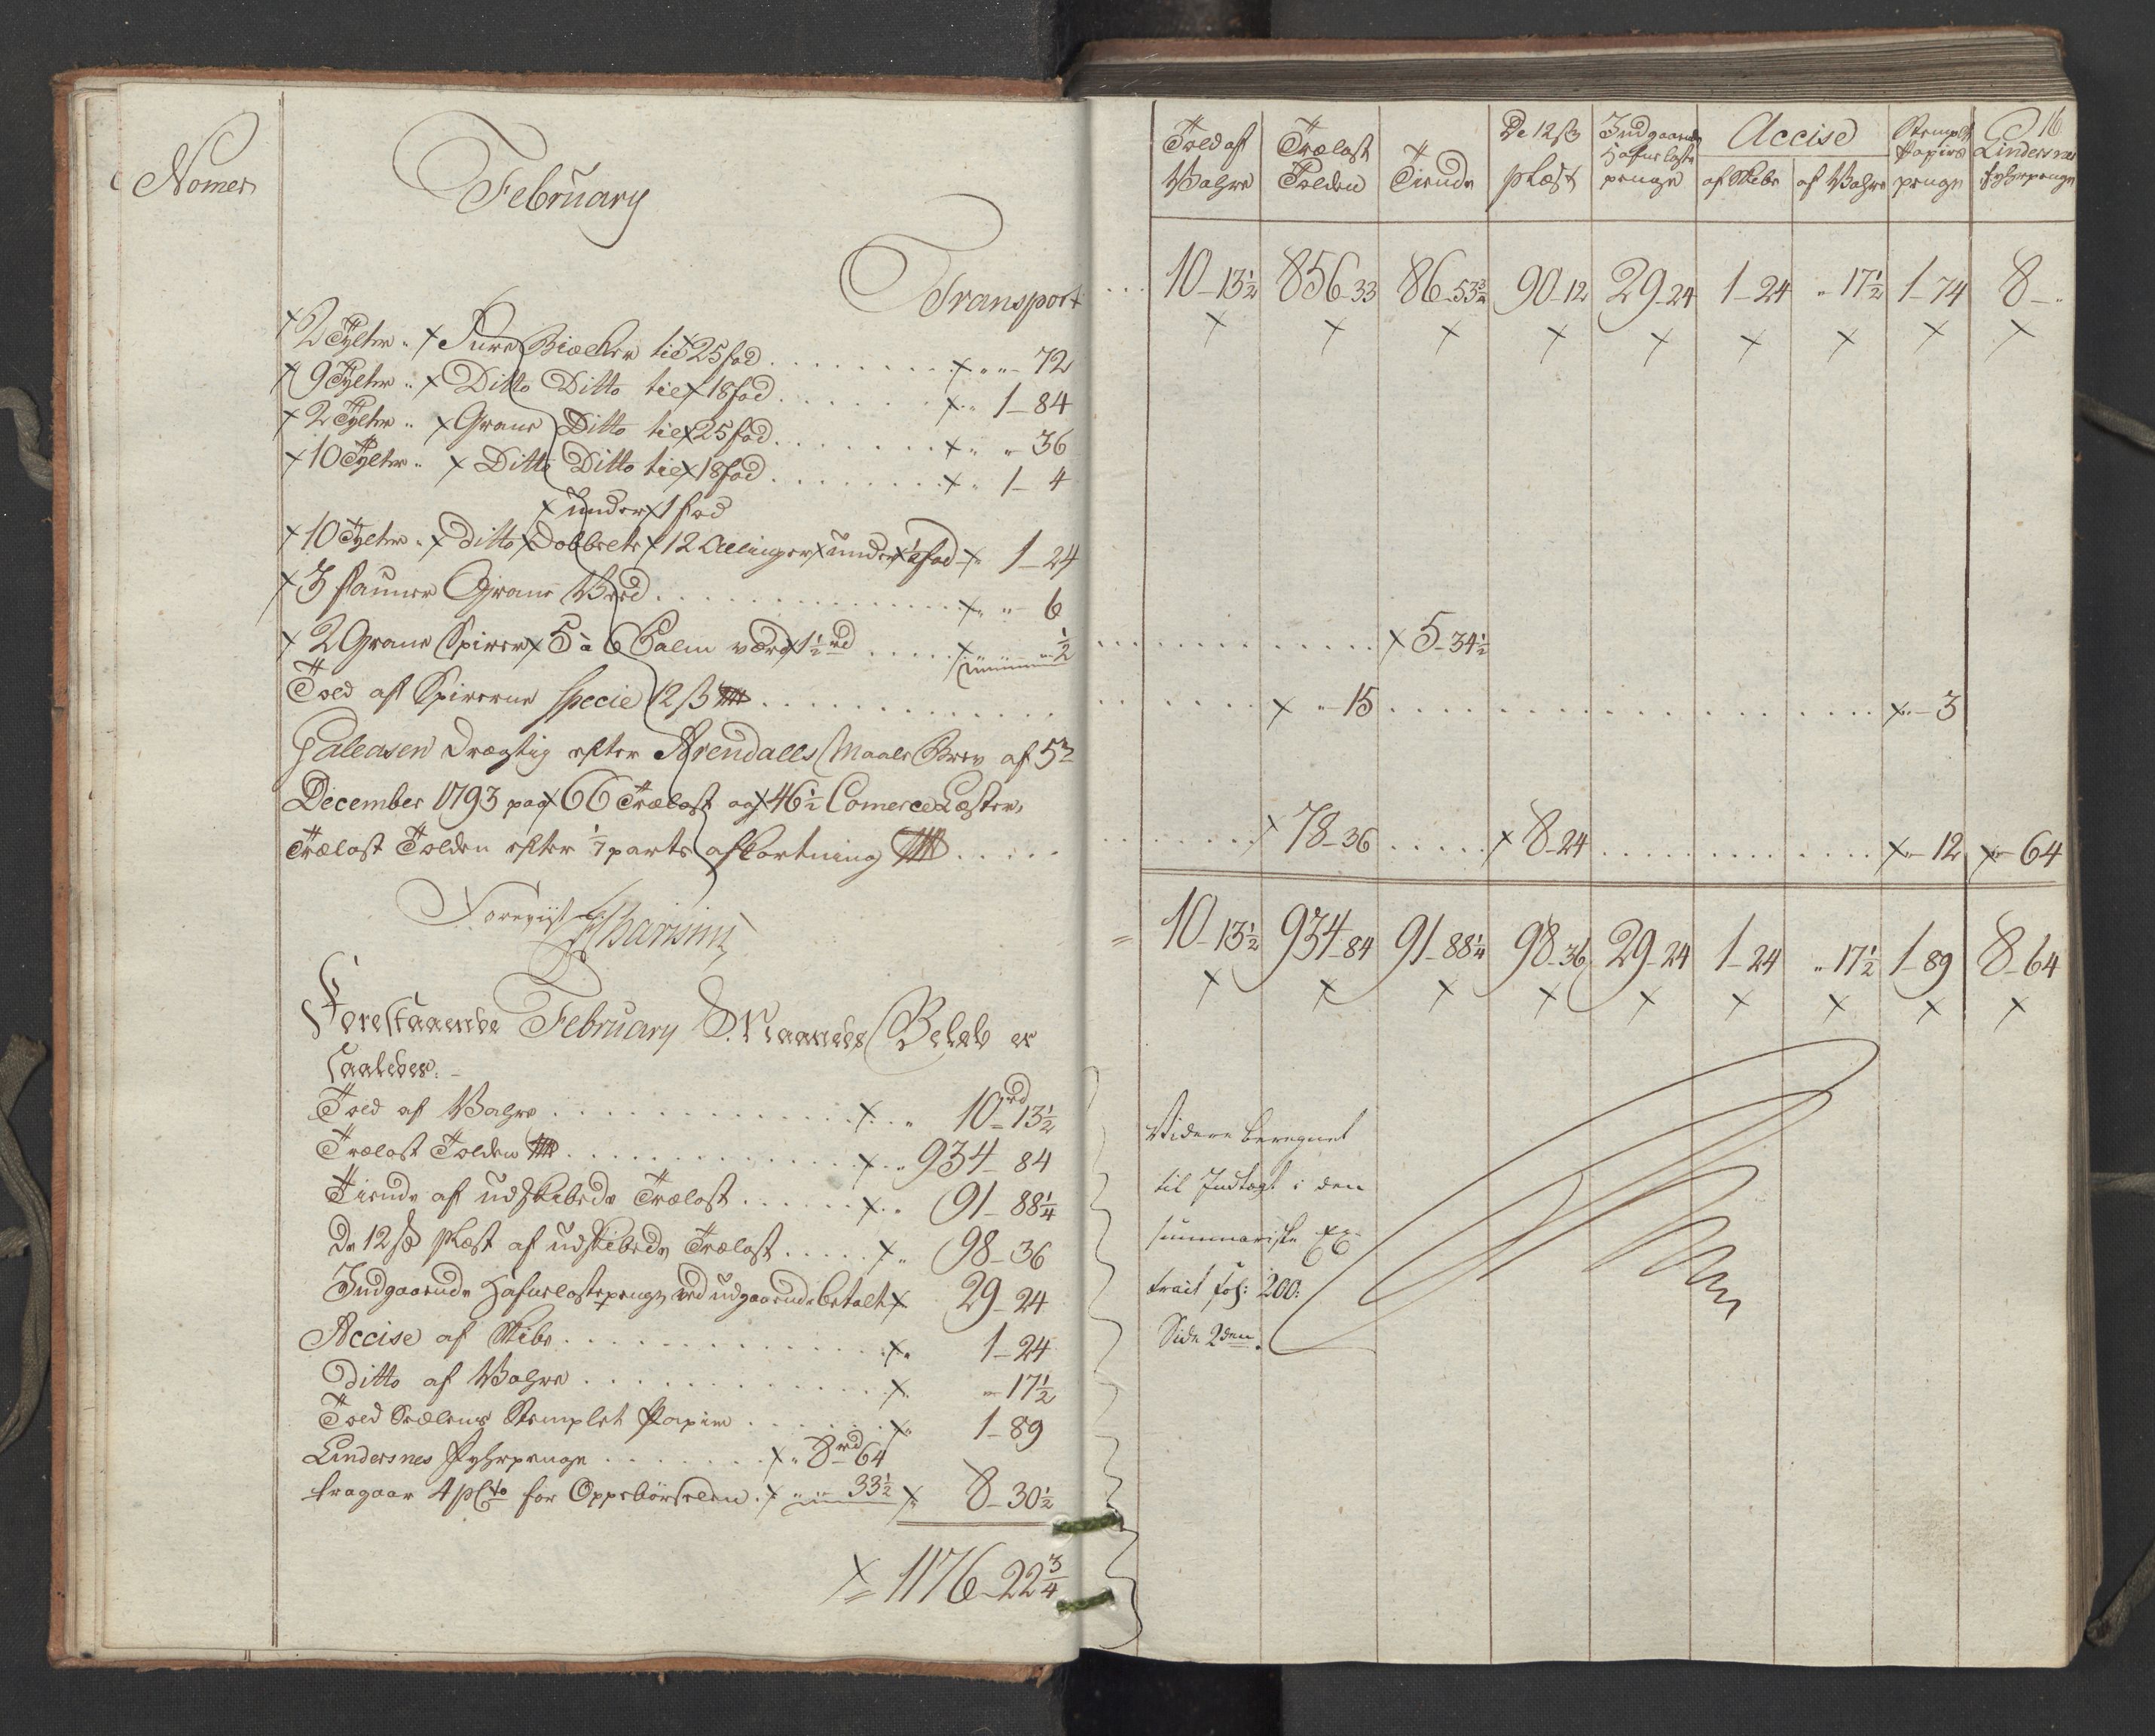 Nomer
February
Transport
2 Tylter „ Furu Biælker til 25 fod . . . „ „ 72
9 Tylter „ Ditto Ditto til 18 fod . . . „ 1 – 84
2 Tylter „ Grane Ditto til 25 fod . . . „ „ 36
10 Tylter „ Ditto Ditto til 18 fod . . . „ 1 – 4
under 1 fod
10 Tylter „ ditto Dobbelte 12 Allinger under 1/2 fod „ 1 – 24
3 faune Grane Veed . . . „ „ 6
2 Grane Spirer 5 a 6 Palm værd 1 1/2 rd . . . „ 1/2
Told af Spirerne specie 12 ß . . .
Galeasen Drægtig efter Arendalls Maale Brev af 5te
December 1793 paa 66 Trælast og 46 1/2 Comerce Læster,
Trælast Tolden efter 1/7 parts afkortning . . .
Foreviist
Forestaaende February Maaneds Beløb er
saaledes. –
Told af Wahre . . . „ 10 rd 13 1/2
Trælast Tolden . . . „ 934 – 84
Tiende af udskibede Trælast . . . „ 91 – 88 1/4
De 12 ß pLæst af udskibede Trælast . . . „ 98 – 36
Indgaaende Hafnelastepenge ved udgaaende betalt 29 – 24
Accise af Skibe . . . „ 1 – 24
ditto af Wahre . . . „ 17 1/2
Told Sedlenes Stemplet Papiir . . . „ 1 – 89
Lindersnes Fyhrpenge . . . „ 8 rd 64
fragaar 4 pCto for Oppebørselen . „ „ 33 1/2 „ 8 – 30 1/2
= 1176 – 22 3/4
16
Told af Wahre
Trælast Tolden
Tiende
De 12 ß pLæst
Indgaaende Hafnelaste penge
Accise
af Skibe
af Wahre
Stemplt Papiirs penge
Lindersnes fyhrpenge
. . . 10 – 13 1/2 856 – 33 86 – 53 3/4 90 – 12 29 – 24 1 – 24 „ 17 1/2 1 – 74 8 – „
. . . 5 – 34 1/2
. . . „ – 15 . . . „ – 3
. . . 78 – 36 . . . 8 – 24 . . . „ – 12 „ – 64
= 10 – 13 1/2 934 – 84 91 – 88 1/4 98 – 36 29 – 24 1 – 24 „ 17 1/2 1 – 89 8 – 64
Videre beregnet
til Indtægt i den
summariske Ex-
tract fol: 200:
Side 2den.